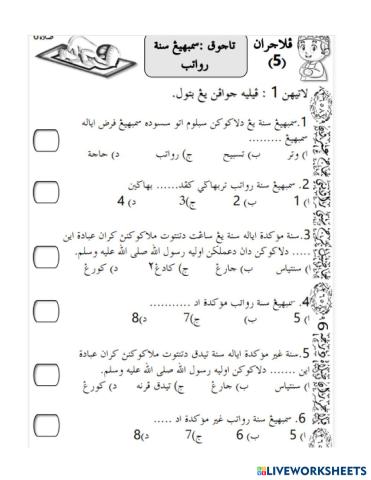 ڤلاجران
(5)
تاجوق :سمبهيڠ سنة
رواتب
لاتيهن 1 : ڤيليه جواڤن يڠ بتول.
1.سمبهيڠ سنة يڠ دلاكوكن سبلوم اتو سسوده سمبهيڠ فرض اياله
سمبهيڠ .........
ا) وتر ب) تسبيح ج) رواتب د) حاجة
2. سمبهيڠ سنة رواتب تربهاݢي كڤد...... بهاݢين
ا) 1 ب) 2 ج)3 د) 4
3.سنة مؤكدة اياله سنة يڠ ساڠت دتنتوت ملاكوكنن كران عبادة اين
..... دلاكوكن دان دعملكن اوليه رسول الله صلى الله عليه وسلم.
ا) سنتياس ب) جارڠ ج) كادڠ٢ د) كورڠ
4. سمبهيڠ سنة رواتب مؤكدة اد ...........
ا) 5 ب) ج)7 د)8
5.سنة غير مؤكدة اياله سنة تيدق دتنتوت ملاكوكنن كران عبادة
اين ....... دلاكوكن اوليه رسول الله صلى الله عليه وسلم.
ا) سنتياس ب) جارڠ ج) تيدق ڤرنه د) كورڠ
6. سمبهيڠ سنة رواتب غير مؤكدة اد .....
ا) 5 ب) 6 ج)7 د)8
LIVEWORKSHEETS